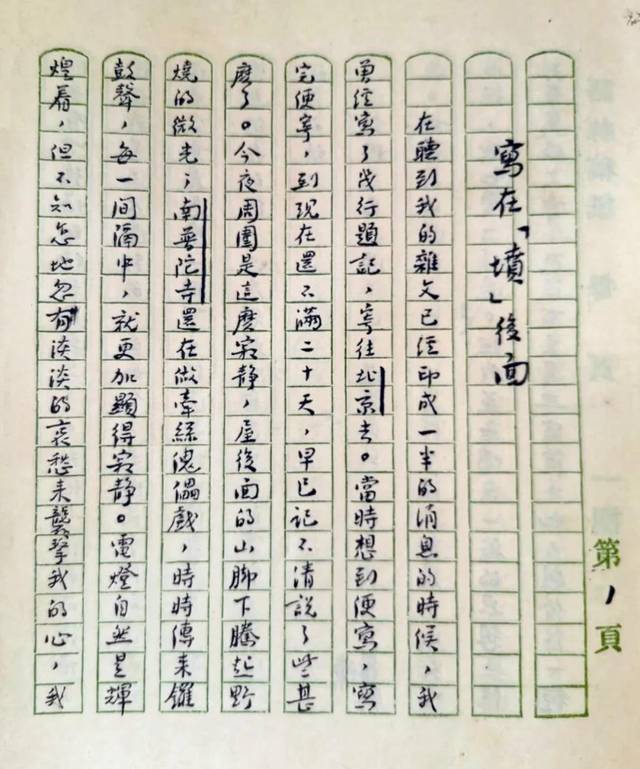 寫在「墳」後面
在聽到我的雜文已經印成一半的消息的時候，我
曾經寫了幾行題記，寄往北京去。當時想到便寫，寫
完便寄，到現在還不滿二十天，早已記不清說了些甚
麼了。今夜周圍是這麼寂靜，屋後面的山腳下騰起野
燒的微光；南普陀寺還在做牽絲傀儡戲，時時傳來鑼
鼓聲，每一間隔中，就更加顯得寂靜。電燈自然是輝
煌着，但不知怎地忽有淡淡的哀愁來襲擊我的心，我
第1頁